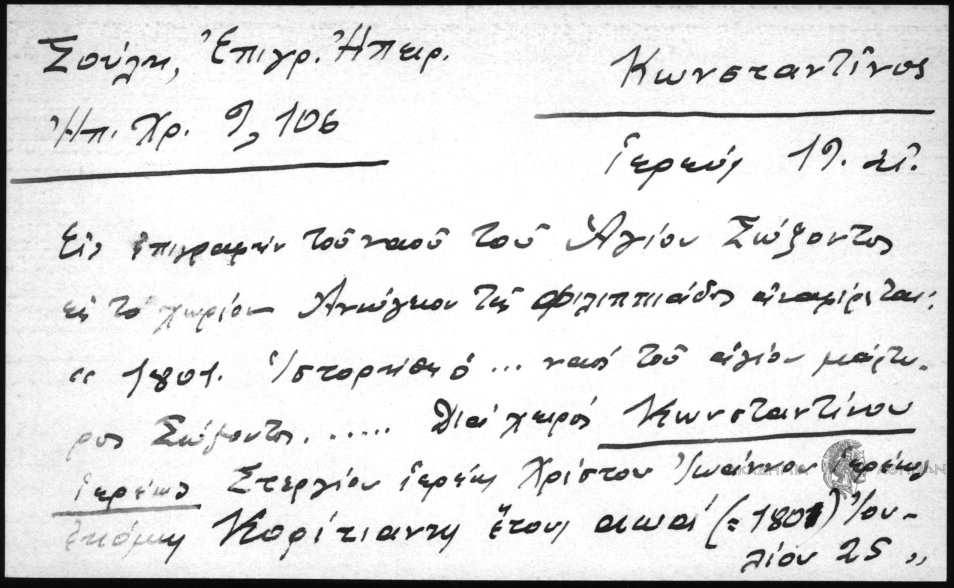 Σούλη, Ἐπιγρ. Ἠπειρ.
Ἠπ. Χρ. 9, 106
Κωνσταντῖνος
ἱερεύς 19. αἰ.
Εἰς ἐπιγραφήν τοῦ ναοῦ τοῦ Ἁγίου Σώζοντος
εἰς τό χωρίον Ἀνώγειον τῆς Φιλιππιάδος ἀναφέρεται:
"1801. Ἱστορήθη ὁ ... ναός τοῦ ἁγίου μάρτυ-
ρος Σώζοντος...... Διά χειρός Κωνσταντίνου
ἱερέως Στεργίου ἱερέως Χρίστου Ἰωάννου ἱερέως
Κορίτιανης ἔτους αωαί (=1801) Ἰου-
λίου 25"